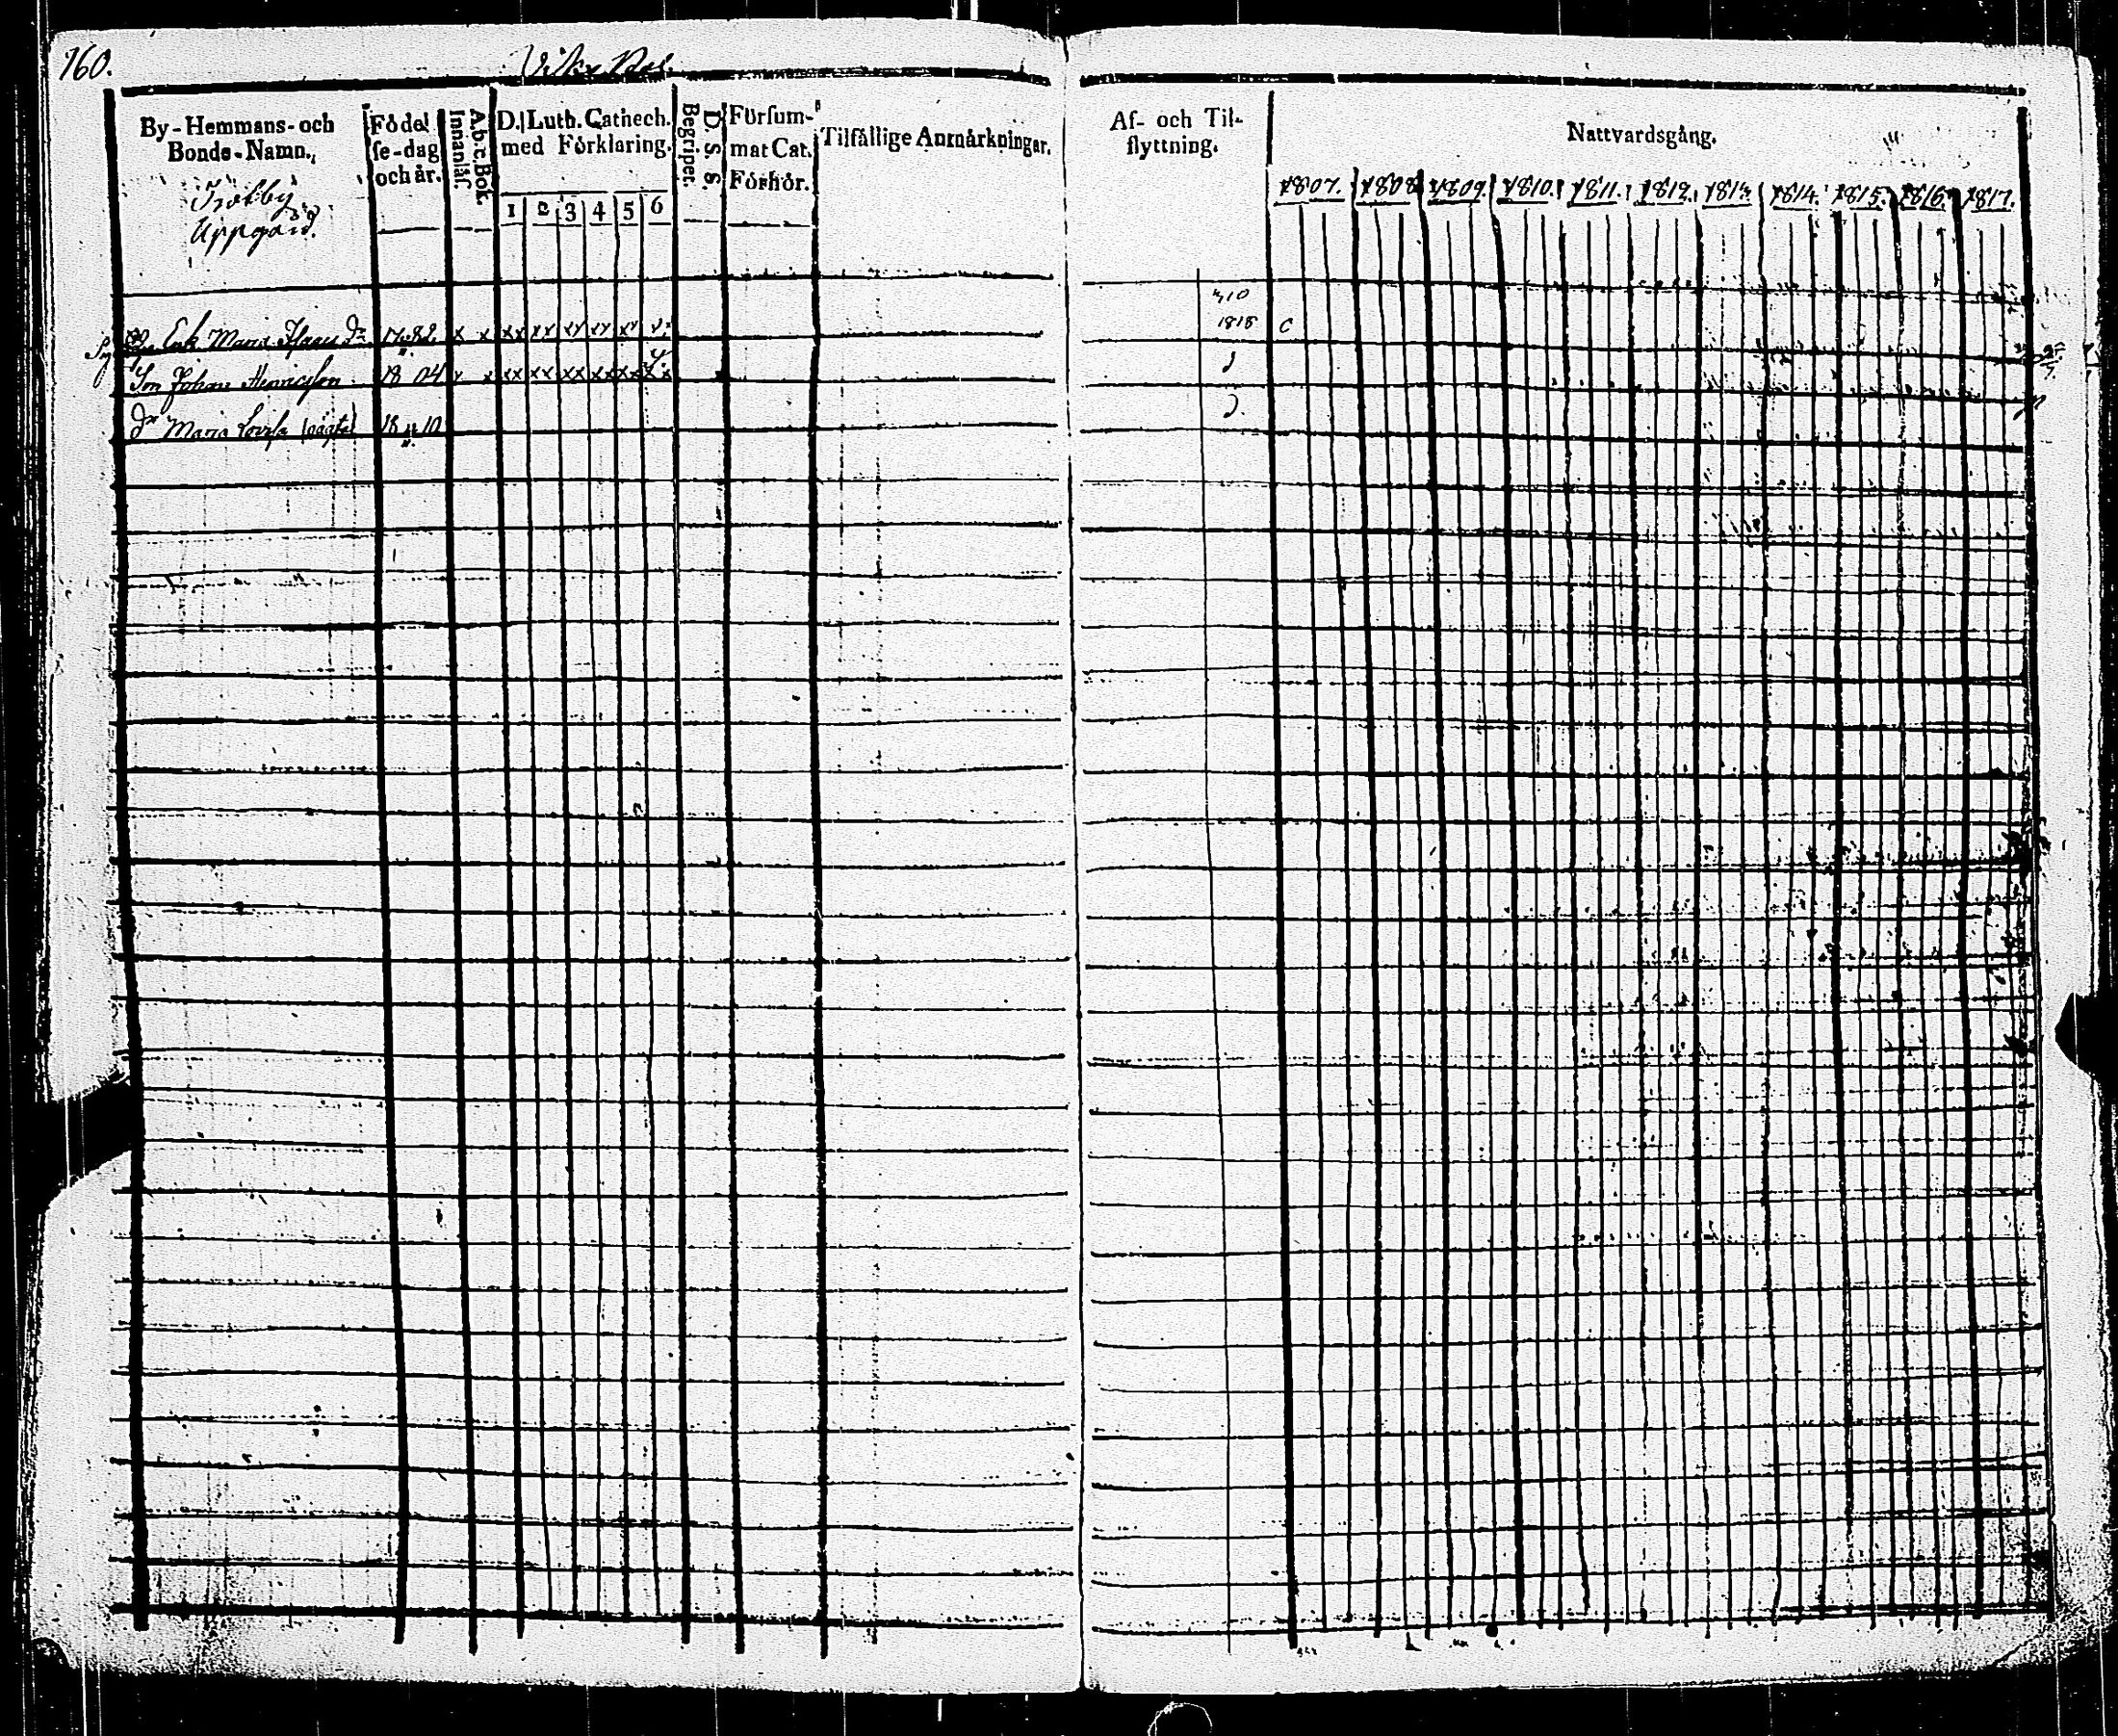 160.
By-Hemmans- och Bonde-Namn.
Födelse-dag och år.
A.b.c. Bok.
Innanläs.
D. Luth. Cathech. med Förklaring.
1 2 3 4 5 6
D. S. S.
Begripet.
Försummat Cat. Förhör.
Tilfällige Anmärkningar.
Af- och Tilflyttning.
Nattvardsgång.
1807. 1808. 1809. 1810. 1811. 1812. 1813. 1814. 1815. 1816. 1817.
Uppgård.
Enk. Maria 1782 x x xx xx xx xx xx 1818 c
Son Johan Henricsson 1804 x x xx xx xx xx xx
Dr Maria Lovisa 1810